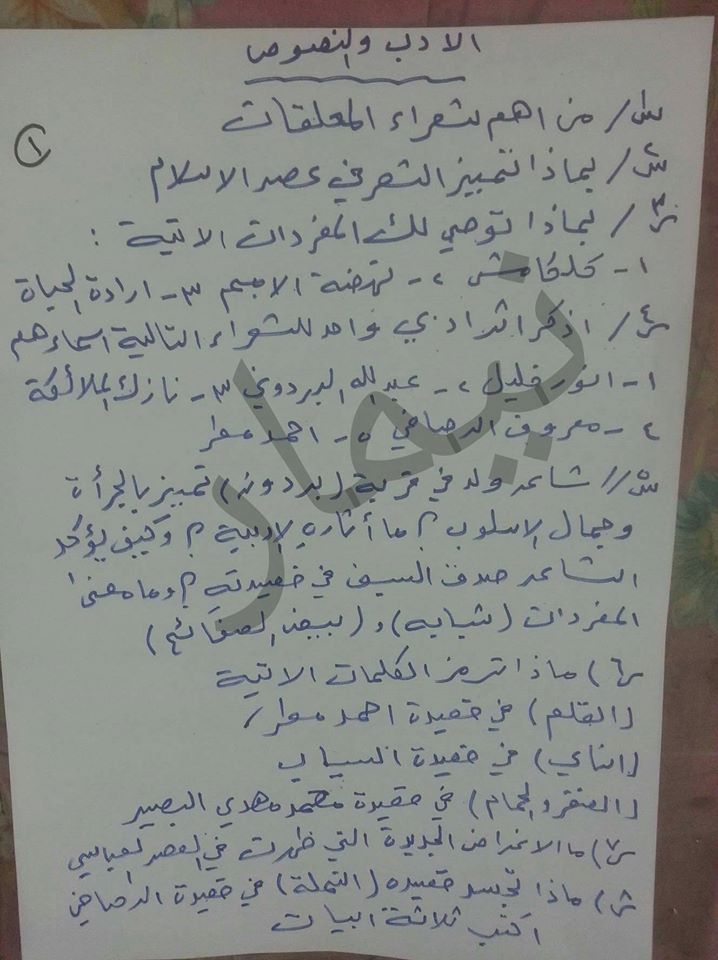 الادب والنصوص
١
س١/ من اهم شعراء المعلقات
س٢/ بماذا تتميز الشعر في عصر الاسلام
س٣/ بماذا توحي لك المفردات الاتية :
١- كلكامش ٢- نهضة الامم ٣- ارادة الحياة
س٤/ اذكر اثر ادبي واحد للشعراء التالية اسماءهم
١- انور خليل ٢- عبد الله البردوني ٣- نازك الملائكة
٤- معروف الرصافي ٥- احمد مطر
س٥// شاعر ولد في قرية (بردون) تميز بالجرأة
وجمال الاسلوب ؟ ما أثاره الادبية ؟ وكيف يؤكد
الشاعر صدق السيف في قصيدته ؟ وما معنى
المفردات (شبابه) و (بيض الصفائح)
س٦) ماذا ترمز الكلمات الاتية
(القلم) في قصيدة احمد مطر/
(الناي) في قصيدة السياب
(الصقر والحمام) في قصيدة محمد مهدي البصير
س٧) ما الاغراض الجديدة التي ظهرت في العصر العباسي
س٨) ماذا تجسد قصيده (النملة) في قصيدة الرصافي
اكتب ثلاثة ابيات
نيمار